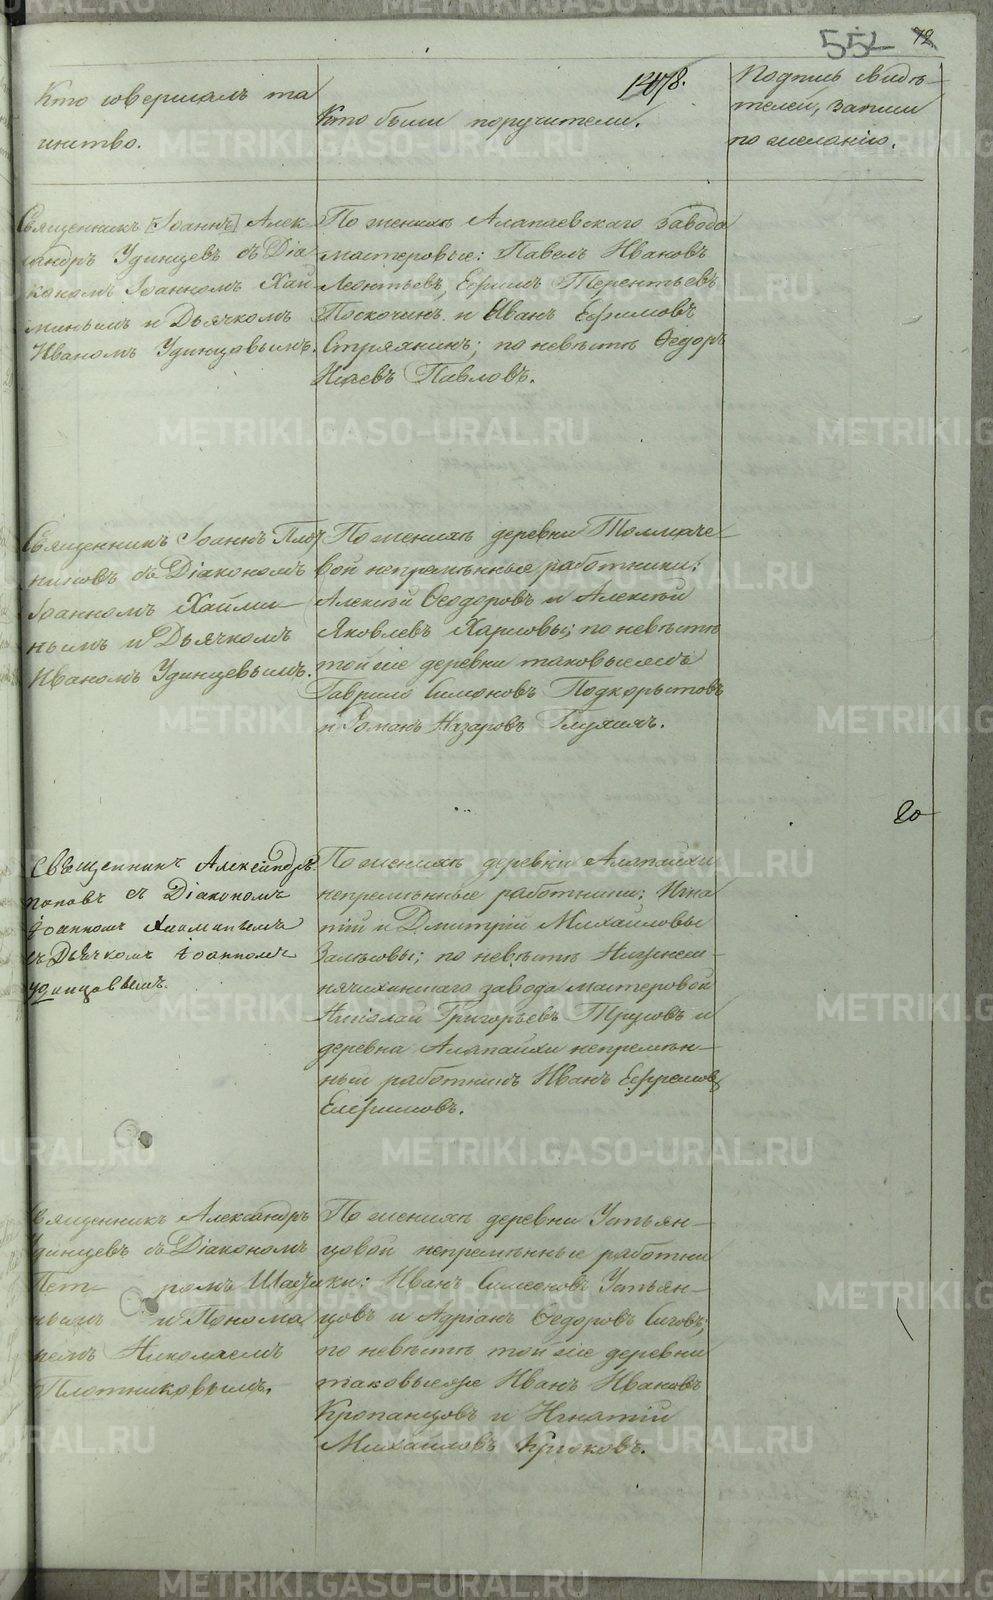 552 72
1478.
Кто совершалъ та
инство.
Кто были поручители.
Подпись свидѣ-
телей, записи
по желанію.
Священникъ [Іоаннъ] Алек
сандръ Удинцевъ съ Діа
кономъ Іоанномъ Хай
минымъ и Дьячкомъ
Иваномъ Удинцовымъ.
По женихѣ Алапаевскаго завода
мастеровые: Павелъ Ивановъ
Леонтьевъ, Ефимъ Терентьевъ
Поскочинъ и Иванъ Ефимовъ
Стряхнинъ; по невѣстѣ Ѳедоръ
Исаевъ Павловъ.
Священникъ Іоаннъ Плот
никовъ съ Діакономъ
Іоанномъ Хайми-
нымъ и Дьячкомъ
Иваномъ Удинцевымъ.
По женихѣ деревни Толмаче-
вой непремѣнные работники:
Алексѣй Ѳеодоровъ и Алексѣй
Яковлевъ Харловы; по невѣстѣ
той же деревни таковыежъ
Гаврило Симоновъ Подкорытовъ
и Романъ Назаровъ Глухихъ.
20
Священникъ Александръ
Поповъ съ Діакономъ
Іоанномъ Хайминымъ
съ Дьячкомъ Іоанномъ
Удинцовымъ.
По женихѣ деревни Алапаихи
непремѣнные работники: Игна
тій и Дмитрій Михайловы
Залѣсовы; по невѣстѣ Нижнеси-
нячихинскаго завода мастеровой
Николай Григорьевъ Трусовъ и
деревни Алапаихи непремѣн-
ный работникъ Иванъ Ефремовъ
Ефимовъ.
Священникъ Александръ
Удинцевъ съ Діакономъ
Пет- ромъ Шаш
нымъ и Понома
ремъ Николаемъ
Плотниковымъ.
По женихѣ деревни Устьян-
цовой непремѣнные работни
ки: Иванъ Симоновъ Устьян-
цовъ и Адріанъ Ѳедоровъ Сычовъ;
по невѣстѣ той же деревни
таковыеже Иванъ Ивановъ
Кропанцовъ и Игнатій
Михайловъ Крюковъ.